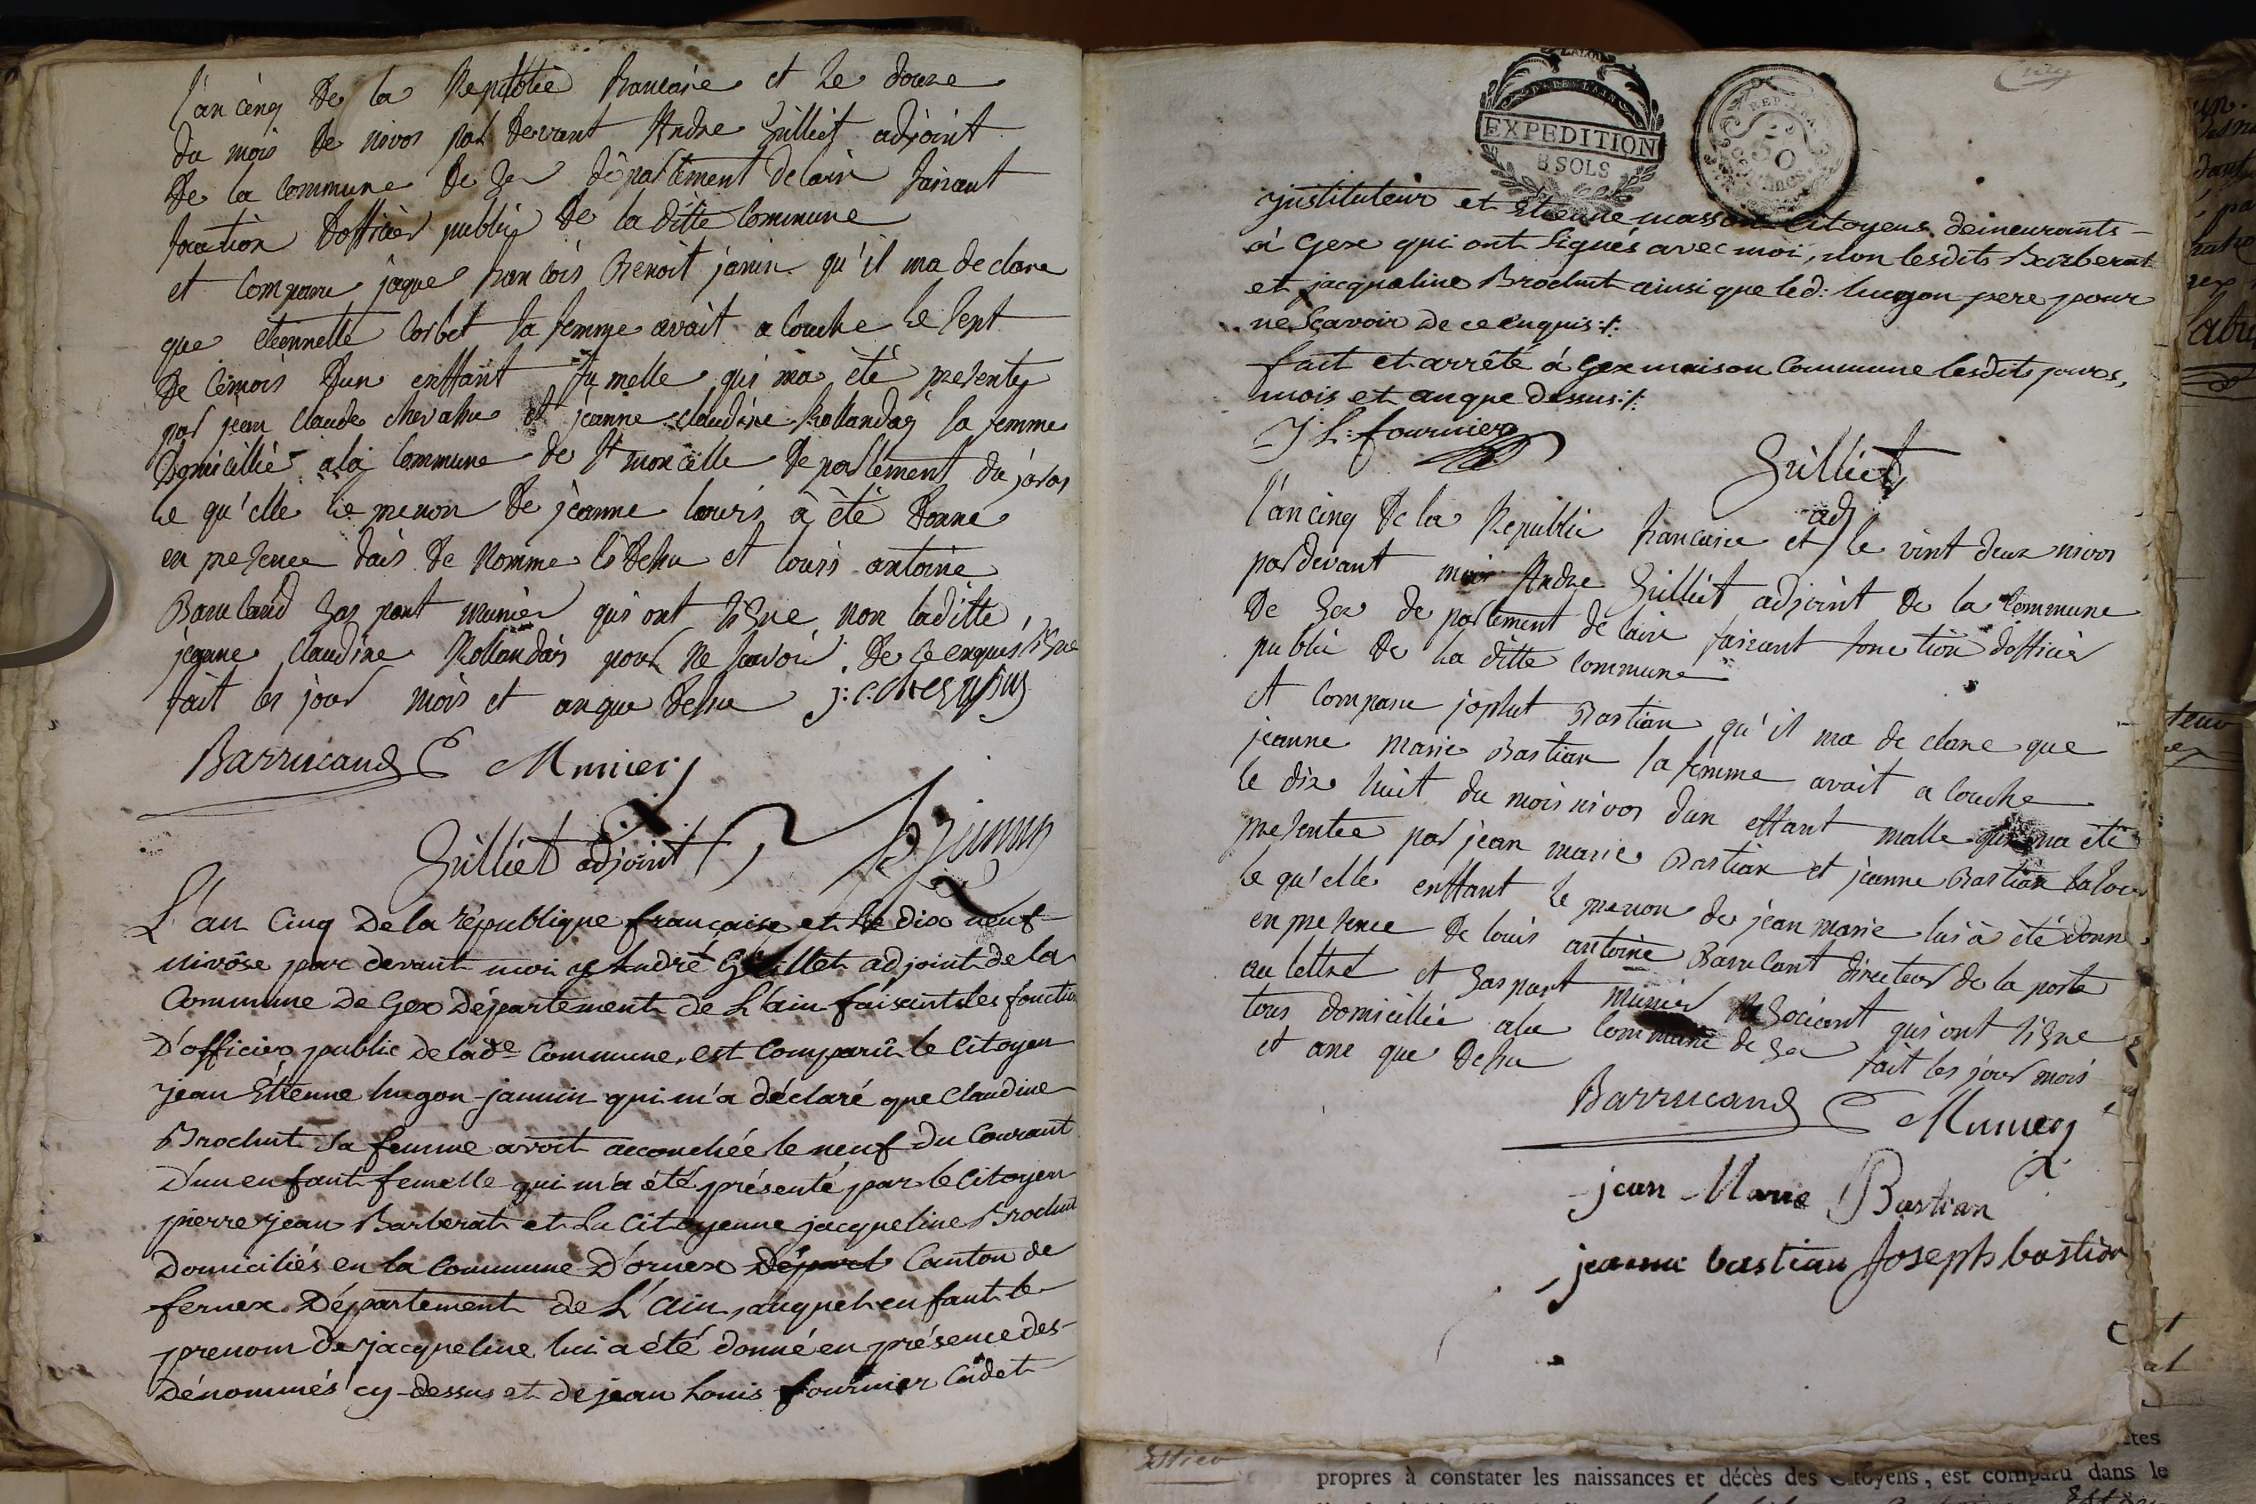 l'an cinq De la Republie francaise et le douze
du mois de nivos par devant Andre Gilliet adjoint
De la commune De Gex département delain faisant
fonction dofficier public De la ditte commune
et compare jaque francois Benoit janin qu'il ma declare
que etiennette Corbet sa femme avait a couche le sept
De cemois Dun enffant fumelle qui ma été presenty
par jean claude chevassu et jeanne claudine Rollanday sa femme
Domicillié ala commune de st moncelle De partement du juras
le qu'elle le prenon De jeanne louis à été Donne
en presence dais De Nomme ci Dessu et louis antoine
Barucand Gas part munier qui ont signe non laditte
jeanne Claudine Rollandais pour ne savoir De ce enquis signe
fait les jour mois et an que Dessu j: c. chevassus
Barrucand C Munier
Gilliet adjoint B janin
L'an Cinq De la république française et le dix neuf
nivôse par devant moi cy André Gilliet adjoint de la
Commune De Gex Département de L'ain faisant les fonction
D'officier public De lade commune, est Comparû le Citoyen
jean Étienne hugon jannin qui m'a déclaré que Claudine
Brochut sa femme avoit accouchée le neuf Du Courant
D'un enfant femelle qui m'a été présenté par le Citoyen
pierre jean Barberat et La Citoyenne jacqueline Brochut
Domiciliés en la Commune D'ornex Départ Canton de
fernex Département de L'Ain, auquel enfant le
prenom De jacqueline lui a été donné en présence des
Dénommés cy-dessus et de jean Louis fournier Cadet
EXPEDITION
8 SOLS
REP. FRA.
50
CENTIMES
jnstituteur et Etienne masson Citoyens demeurants
à Gex qui ont signés avec moi, non lesdits Barberat
et jacqueline Brochut ainsi que led: hugon pere pour
ne Scavoir de ce enquis:/:
fait et arrêté à Gex maison Commune lesdits jours,
mois et an que Dessus:/:
J. L. fournier
Gilliet
adj
l'an cinq De la Republie francaise et le vint deux nivos
par devant moi Andre Gilliet adjoint De la commune
De Gex de partement de lain faisant fonction dofficier
public De la ditte commune
et compare josphet Bastian qu'il ma de clare que
jeanne marie Bastian sa femme avait a couche
le dix huit du mois nivos dun effant malle qui ma été
presentee par jean marie Bastian et jeanne Bastian
le qu'elle enffant le prenon de jean marie lui à été donne
en presence De louis antoine Barucant directeur de la poste
au lettre et Gas part munier Negociant qui ont signe
tous domicillié ala commune de Gex fait les jour mois
et ane que Dessu
Barrucand C Munier
jean Marie Bastian
jeanne bastian Joseph bastian
propres à constater les naissances et décès des Citoyens, est comparu dans le